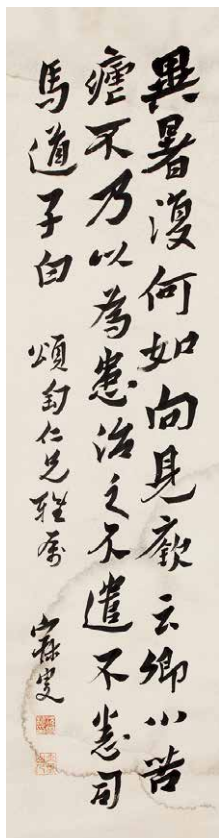 異暑復何如向見歡云卿小苦
瘧不乃以為患治之不遣不悉司
馬道子白
頌匋仁兄雅屬
寐叟